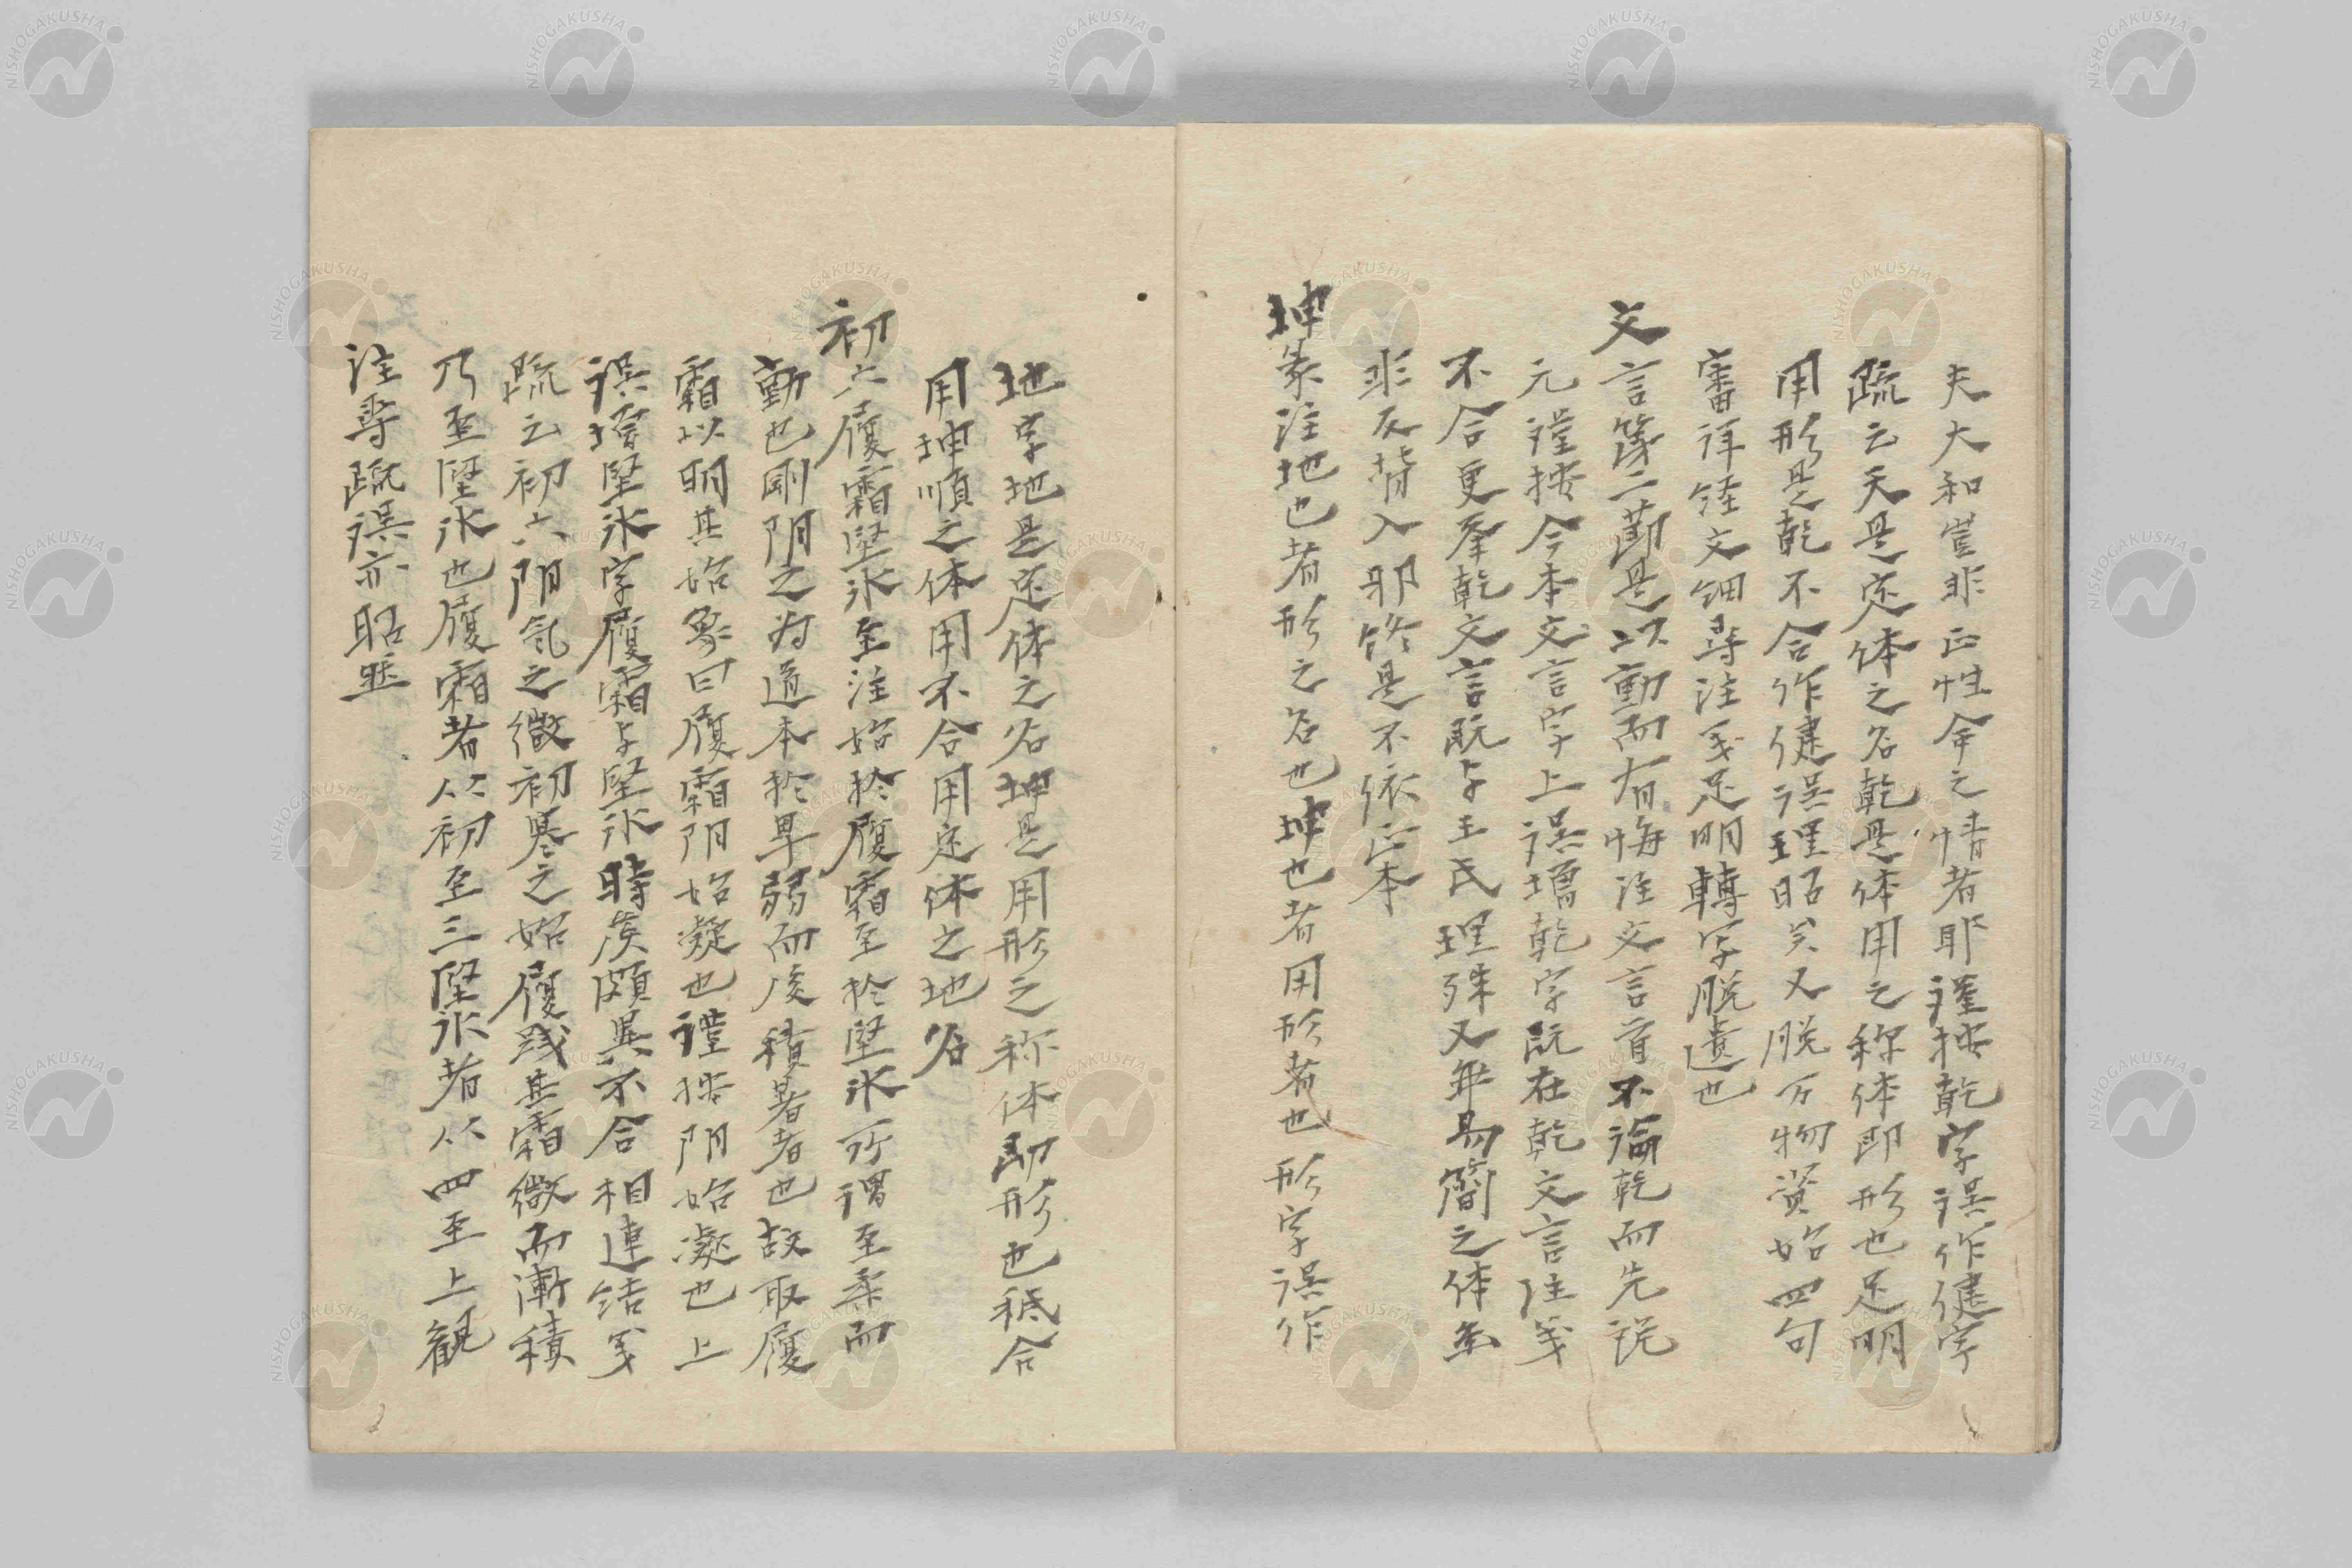 夫大和豈非正性命之情者耶謹按乾字誤作健字
疏云天是定体之名乾是体用之称体即形也足明
用形是乾不合作健誤理昭矣又脱万物資始四句
審詳経文細尋注義足明轉字脱遺也
文言第二節是以動而有悔注文言首不論乾而先説
元謹按今本文言字上誤増乾字既在乾文言注義
不合更挙乾文言既与王氏理殊又無易簡之体
非反背入邪終是不依正本
坤彖注地也者形之名也坤也者用形者也形字誤作
地字地是定体之名坤是用形之称体即形也秖合
用坤順之体用不合用定体之地名
初六履霜堅氷至注始於履霜至於堅氷所謂至柔而
動也剛阴之為道本於卑弱而後積著者也故取履
霜以明其始象曰履霜阴始凝也謹按阴始凝也上
誤増堅氷字履霜与堅氷時候頗異不合相連結義
疏云初六阴氣之微初寒之始履践其霜微而漸積
乃至堅氷也履霜者从初至三堅氷者从四至上観
注尋疏誤亦昭